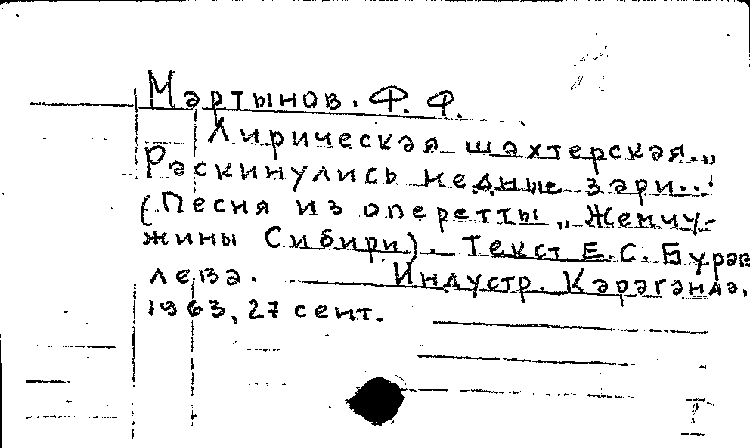 Мартынов. Ф. Ф.
Лирическая шахтерская. „
Раскинулись медные зари..."
(Песня из оперетты „Жемчу-
жины Сибири). Текст Е. С. Бурав
лева. Индустр. Караганда,
1963, 27 сент.
I